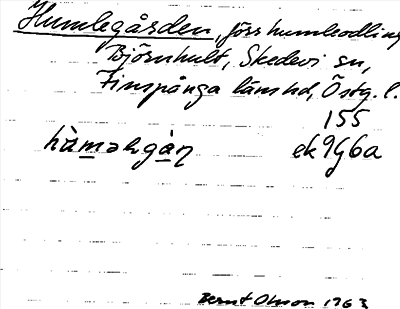 Humlegården, förr humleodling
Björnhult, Skedevi sn,
Finspånga läns hd, Östg. l.
155
hàməlgàṇ ek 9G6a
Bernt Olsson 1963